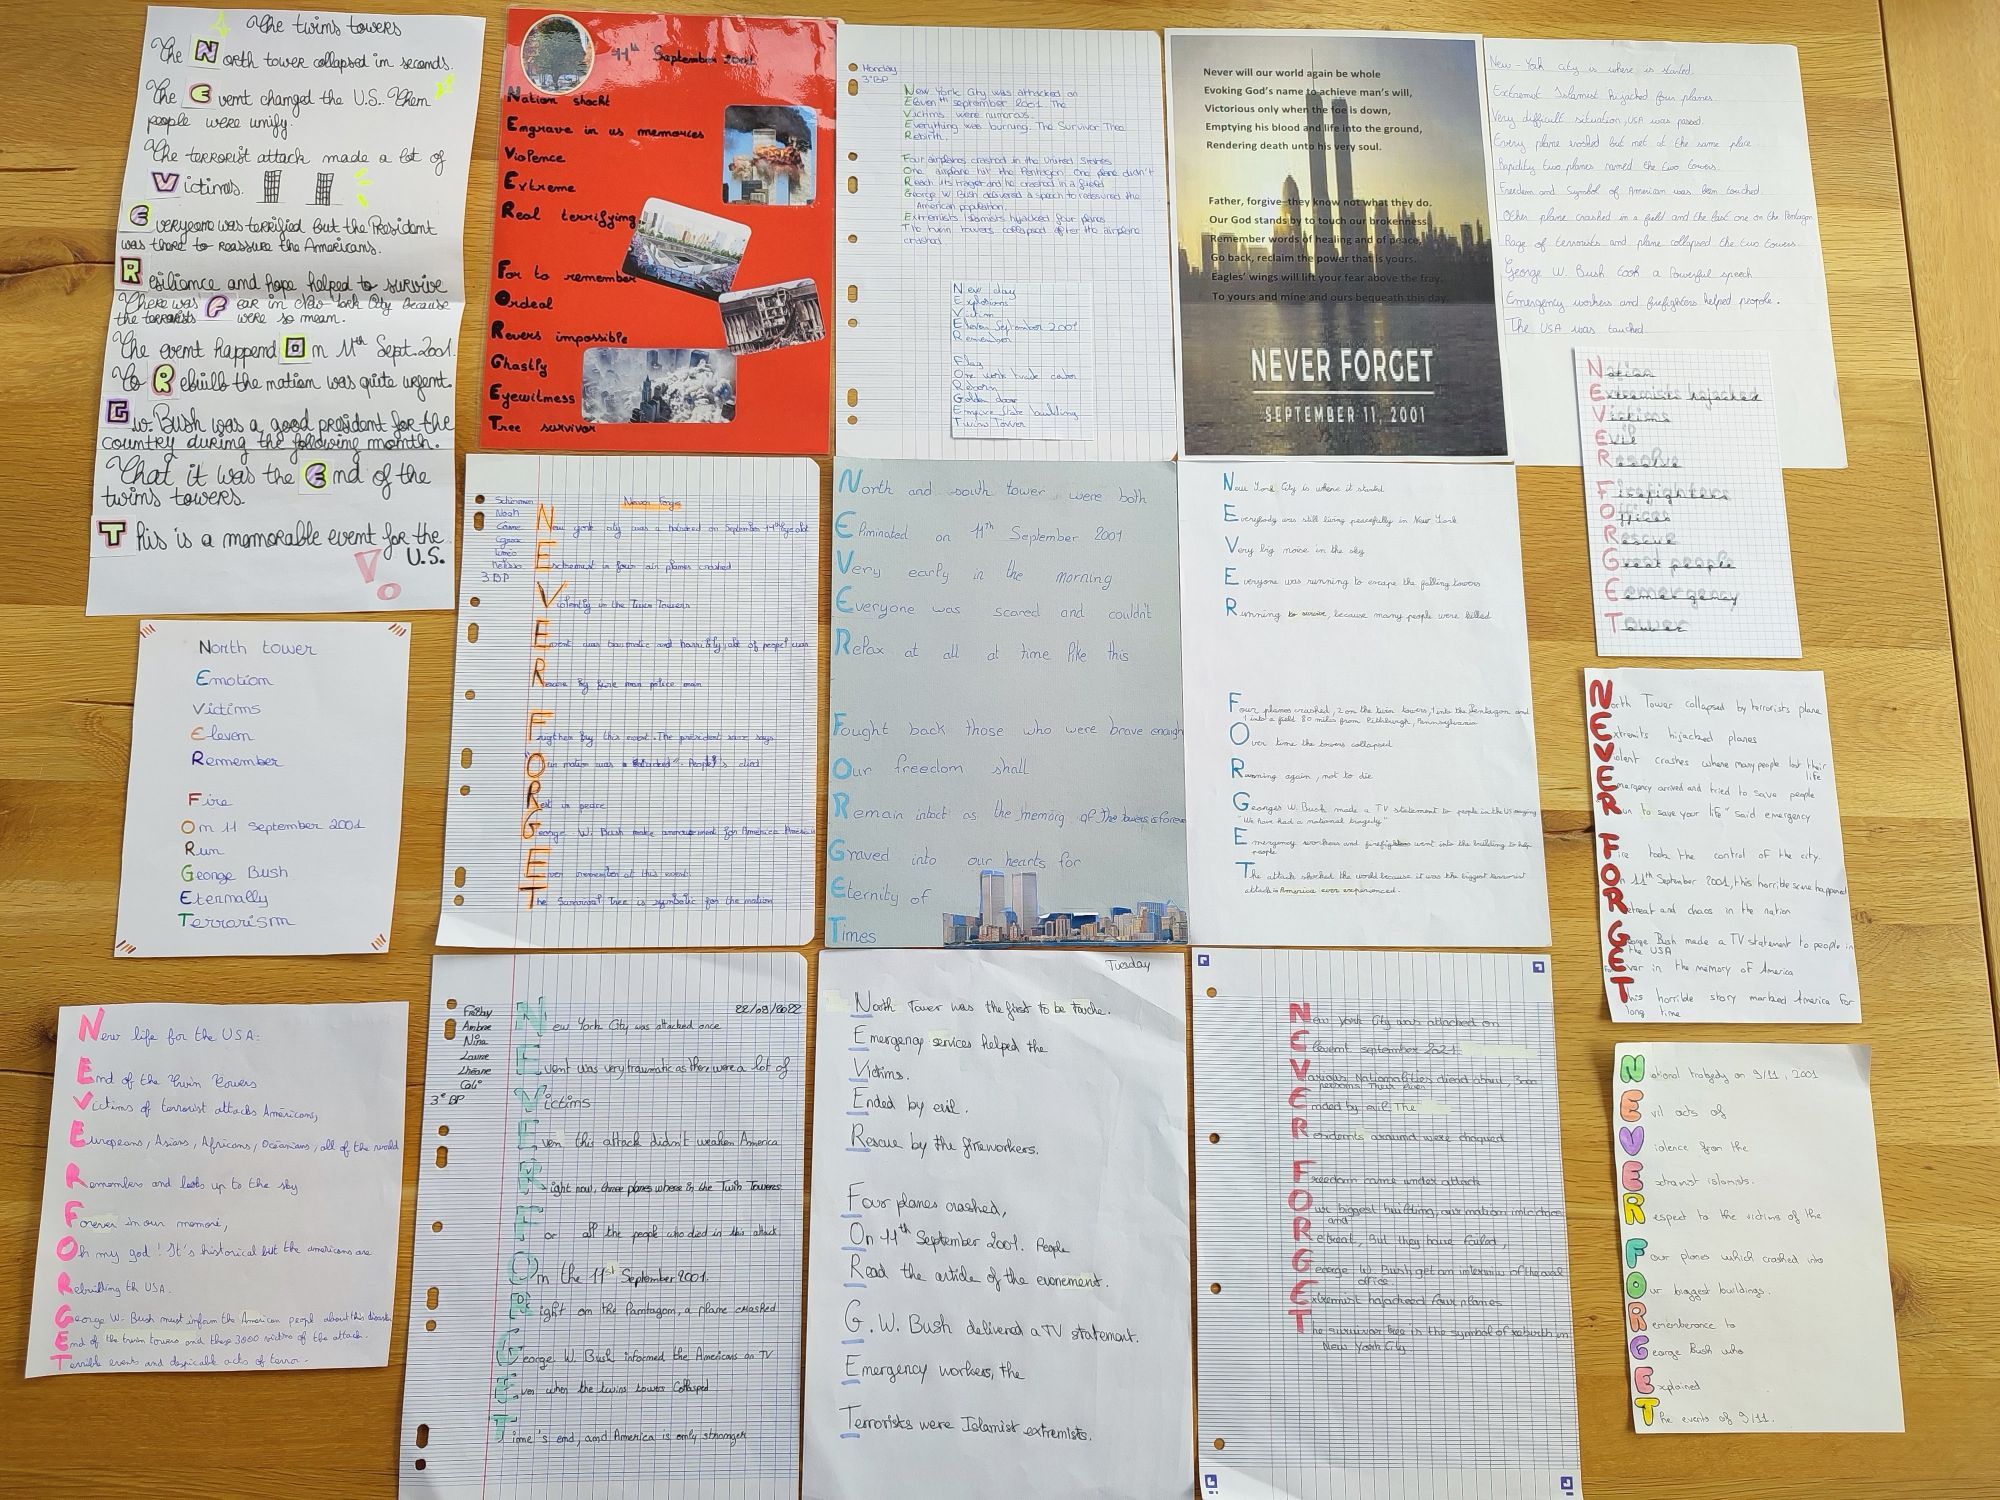 The twins towers
The North tower collapsed in seconds.
The Event changed the U.S. Them
people were unify.
The terrorist attack made a lot of
Victimes.
Everyone was terrified but the President
was there to reassure the Americans.
Resiliance and hope helped to survive
There was Fear in New-York City because
the terrorists were so mean.
The event happend On 11th Sept. 2001.
To Rebuilt the nation was quite urgent.
G.W. Bush was a good president for the
country during the following month.
That it was the End of the
twins towers.
This is a memorable event for the
U.S.
11th September 2001
Nation shockt
Engrave in us memories
Violence
Extreme
Real terrifying...
For to remember
Ordeal
Revers impossible
Ghastly
Eyewitness
Tree survivor
Monday
3°BP
New York City was attacked on
Eleventh september 2001. The
Victims were numorous.
Everything was burning. The Survivor Tree
Rebirth.
Four airplanes crashed in the United States
One airplane hit the Pentagon. One plane didn't
Reach its traget and he crashed in a field
George W. Bush delivered a speech to reassured the
American population.
Extremists Islamists hijacked four planes
The twin towers collapsed after the airplane
crashed
New day
Explosions
Victim
Eleven September 2001
Remember
Flag
One work trade center
Reborn
Golden door
Empire State building
Twins Tower
Never will our world again be whole
Evoking God's name to achieve man's will,
Victorious only when the foe is down,
Emptying his blood and life into the ground,
Rendering death unto his very soul.
Father, forgive–they know not what they do.
Our God stands by to touch our brokenness
Remember words of healing and of peace,
Go back, reclaim the power that is yours.
Eagles' wings will lift your fear above the fray.
To yours and mine and ours bequeath this day.
NEVER FORGET
SEPTEMBER 11, 2001
New-York city is where is started.
Extremist Islamist hijacked four planes.
Very difficult situation, USA was passed.
Every plane crashed but met at the same place.
Rapidity two planes named the two towers.
Freedom and Symbol of American was been touched.
Other plane crashed in a field and the last one on the Pentagon
Rage of terrorists and plane collapsed the two towers.
George W. Bush took a Powerful speech
Emergency workers and firefighters helped people.
The USA was touched
Nation
Extremists hijacked
Victims
Evil
Resolve
Firefighters
Offices
Rescue
Great people
Emergency
Tower
North tower
Emotion
Victims
Eleven
Remember
Fire
On 11 September 2001
Run
George Bush
Eternally
Terrorism
Noah
3 BP
Never Forget
New york city was a on September 11th
Extremist in four air planes crashed
Violently in the Twin Towers
Event was traumatic and lot of people
Rescue by fire man police man
by this event. The president says
"Our nation was People's died
Rest in peace
George W. Bush make announcement for America
Ever remember at this event
The Survivor Tree is symbolic for the nation
North and south tower were both
Eliminated on 11th September 2001
Very early in the morning
Everyone was scared and couldn't
Relax at all at time like this
Fought back those who were brave enough
Our freedom shall
Remain intact as the memory of the towers is forever
Graved into our hearts for
Eternity of
Times
New York City is where it started
Everybody was still living peacefully in New York
Very big noise in the sky
Everyone was running to escape the falling towers
Running to survive, because many people were killed
Four planes crashed, 2 on the twin towers, 1 into the Pentagon and
1 into a field 80 miles from Pittsburgh, Pennsylvania
Over time the towers collapsed
Running again, not to die
Georges W. Bush made a TV statement to people in the US saying
"We have had a national tragedy"
Emergency workers and firefighters went into the building to help
people
The attack shocked the world because it was the biggest terrorist
attack in America ever experienced.
North Tower collapsed by terrorists plane
Extremits hijacked planes
Violent crashes where many people lost their
life
Emergency arrived and tried to save people
Run to save your life" said emergency
Fire took the control of the city.
On 11th September 2001, this horrible scene happened
Retreat and chaos in the nation
George Bush made a TV statement to people in
the USA
For Ever in the memory of America
This horrible story marked America for
long time
New life for the USA:
End of the Twin Towers
Victims of terrorist attacks Américans,
Européans, Asians, Africans, Océanians, all of the world
Remembers and looks up to the sky
Forever in our memori,
Oh my god! It's historical but the americans are
Rebuilting th USA.
George W. Bush must inform the American people about this disaster
End of the twin towers and these 3000 victims of the attack.
Terrible events and despicable acts of terror.
Friday
Ambre
Nina
Laurine
Lhéane
Cali
3°BP
22/09/2022
New York City was attacked once
Event was very traumatic as there were a lot of
Victims
Even this attack didn't weaken America
Right now, three planes where in the Twin Towers
For all the people who died in this attack
On the 11st September 2001.
Right on the Pamtagom, a plane crashed
George W. Bush informed the Americans on TV
Ever when the twins towers Collapsed
Time's end, and America is only stronger
Tuesday
North Tower was the first to be touche.
Emergency services helped the
Victims.
Ended by evil.
Rescue by the fireworkers.
Four planes crashed,
On 11th September 2001. People
Read the article of the evenement.
G.W. Bush delivered a TV statement.
Emergency workers, the
Terrorists were Islamist extremists.
New york City was attacked on
Elevent september 2021
Various Nationalities diend about, 3000
persons their even
Ended by evil. The
Residents around were choqued
Freedom came under attack
Our biggest building, our nation into chaos
and
Retreat, But they have failed,
George W. Bush get an interview of the oval
office.
Extremist hajacheed four planes
The survivor tree is the symbol of rebirth in
New York City
National tragedy on 9/11, 2001
Evil acts of
Violence from the
Extramist islamists.
Respect to the victims of the
Four planes which crashed into
Our biggest buildings.
Rememberance to
George Bush who
Explained
The events of 9/11.